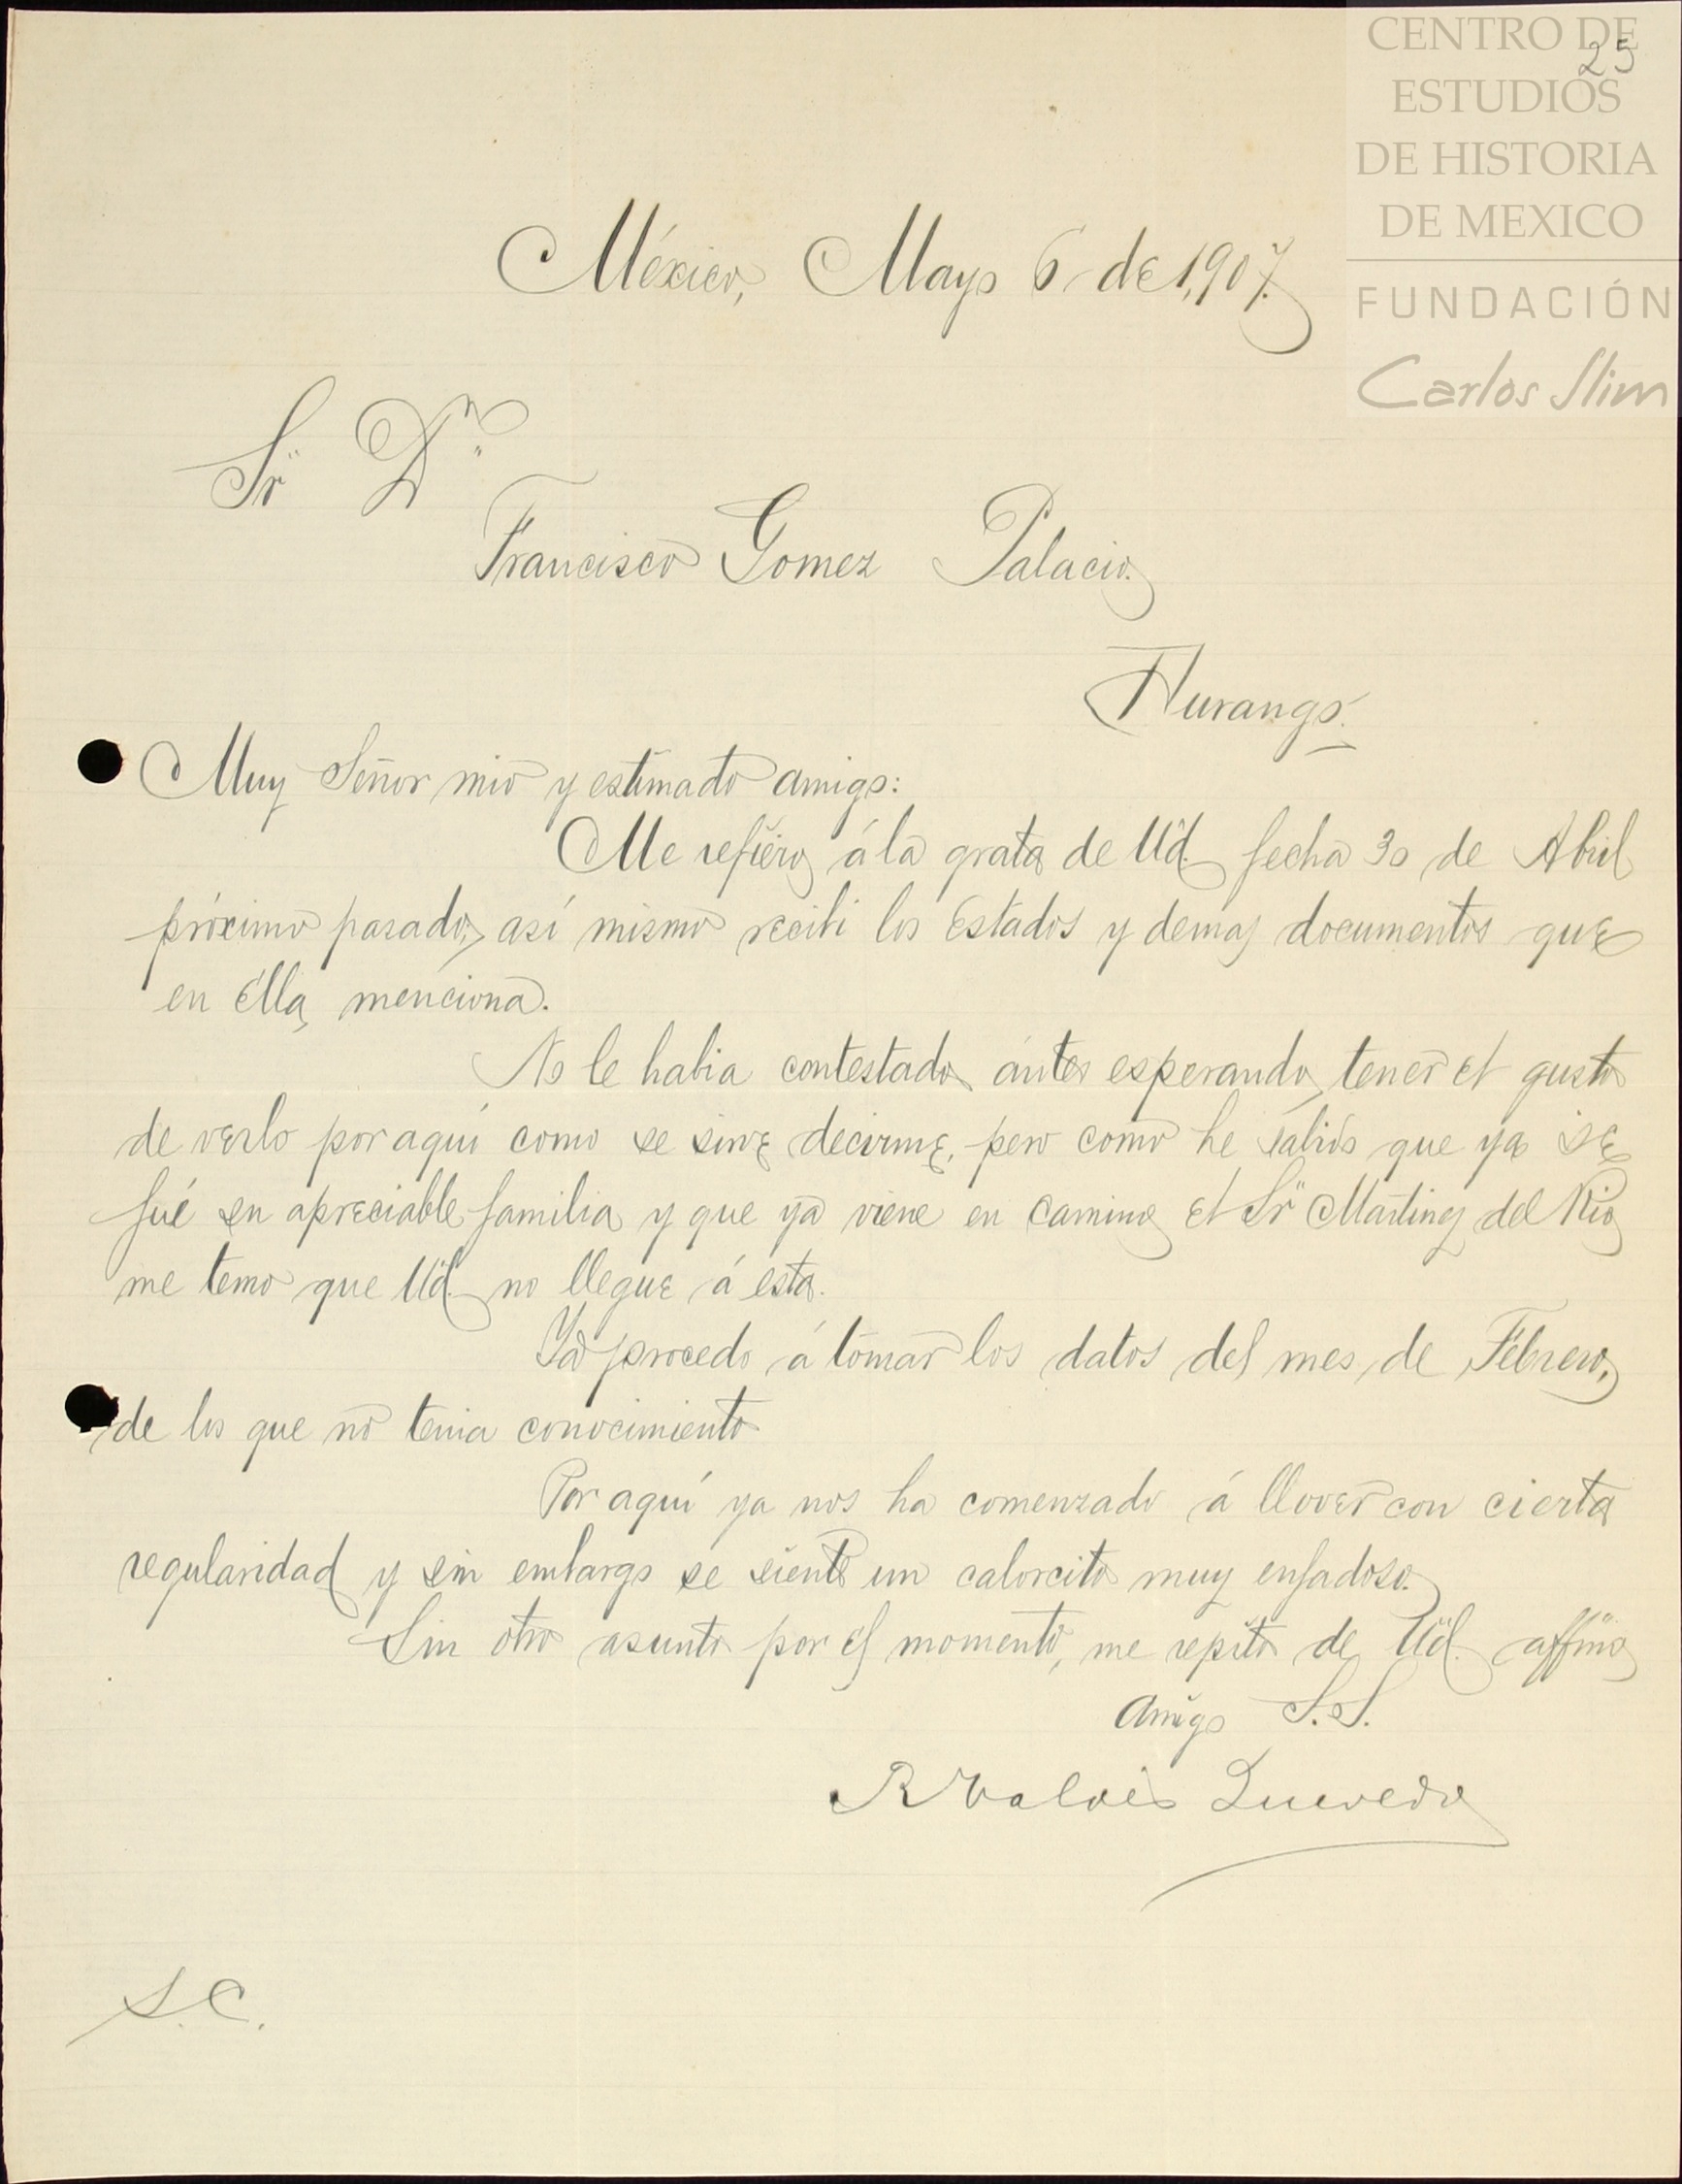 CENTRO DE
ESTUDIOS
DE HISTORIA
DE MEXICO
FUNDACIÓN
Carlos Slim
25
México, Mayo 6 de 1,907.
Sr. Dn.
Francisco Gomez Palacio.
Durango.
Muy Señor mio y estimado amigo:
Me refiero á la grata de Ud. fecha 30 de Abril
próximo pasado, así mismo recibi los Estados y demas documentos que
en élla menciona.
No le habia contestado ántes esperando tener el gusto
de verlo por aquí como se sirve decirme, pero como he sabido que ya se
fué su apreciable familia y que ya viene en camino el Sr. Martinez del Rio
me temo que Ud. no llegue á esta.
Ya procedo á tomar los datos del mes de Febrero,
de los que no tenia conocimiento
Por aquí ya nos ha comenzado á llover con cierta
regularidad y sin embargo se siente un calorcito muy enfadoso.
Sin otro asunto por el momento, me repito de Ud. affmo
amigo S.S.
R Valdés Quevedo
S.C.